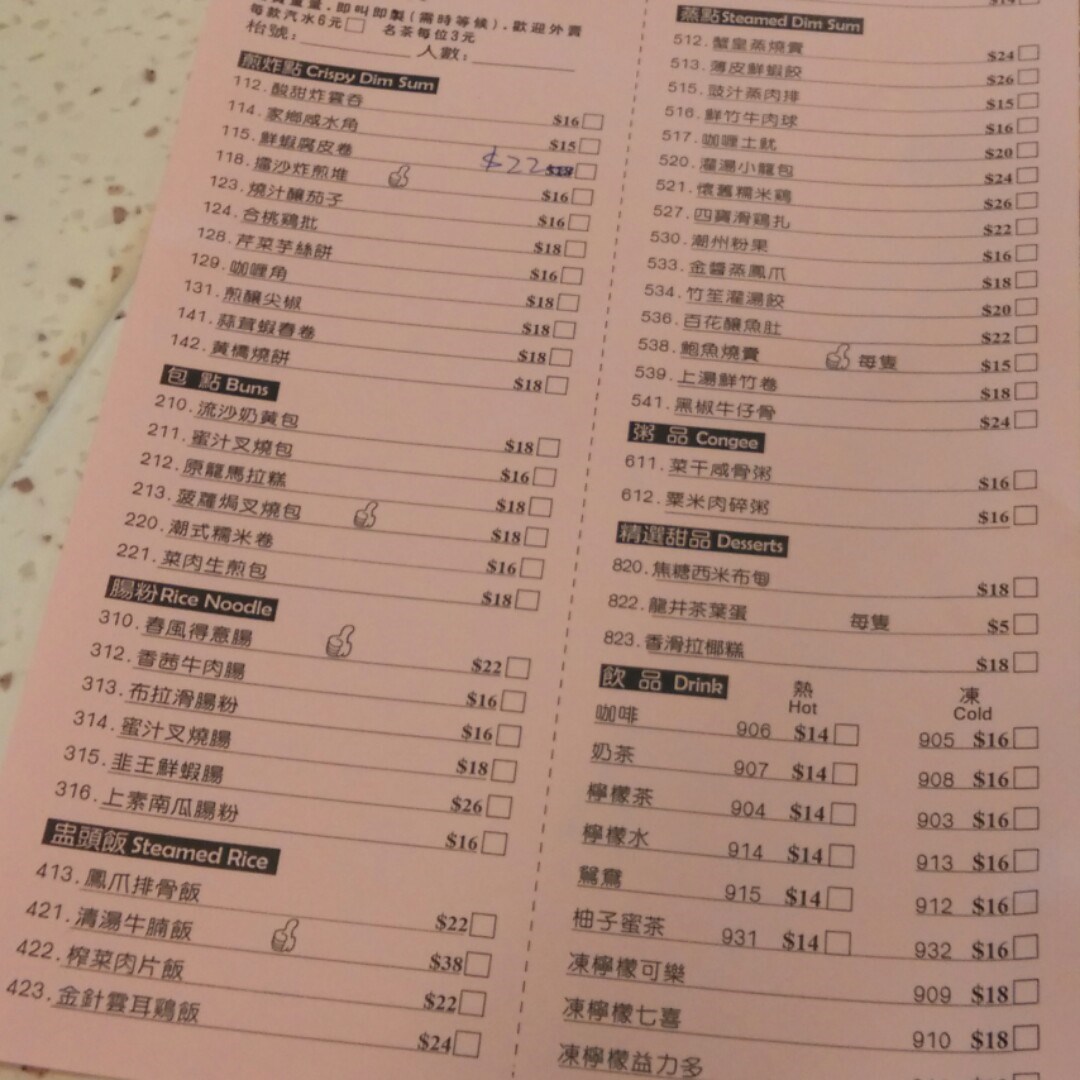 即叫即製(需時等候), 歡迎外賣
每款汽水6元 名茶每位3元
枱號: 人數:
煎炸點 Crispy Dim Sum
112. 酸甜炸雲吞 $16
114. 家鄉咸水角 $15
115. 鮮蝦腐皮卷 $22
118. 擂沙炸煎堆 $16
123. 燒汁釀茄子 $16
124. 合桃鷄批 $18
128. 芹菜芋絲餅 $16
129. 咖喱角 $18
131. 煎釀尖椒 $18
141. 蒜茸蝦春卷 $18
142. 黃橋燒餅 $18
包點 Buns
210. 流沙奶黃包 $18
211. 蜜汁叉燒包 $16
212. 原籠馬拉糕 $18
213. 菠蘿焗叉燒包 $18
220. 潮式糯米卷 $16
221. 菜肉生煎包 $18
腸粉 Rice Noodle
310. 春風得意腸 $22
312. 香茜牛肉腸 $16
313. 布拉滑腸粉 $16
314. 蜜汁叉燒腸 $18
315. 韭王鮮蝦腸 $26
316. 上素南瓜腸粉 $16
盅頭飯 Steamed Rice
413. 鳳爪排骨飯 $22
421. 清湯牛腩飯 $38
422. 榨菜肉片飯 $22
423. 金針雲耳鷄飯 $24
蒸點 Steamed Dim Sum
512. 蟹皇蒸燒賣 $24
513. 薄皮鮮蝦餃 $26
515. 豉汁蒸肉排 $15
516. 鮮竹牛肉球 $16
517. 咖喱土魷 $20
520. 灌湯小籠包 $24
521. 懷舊糯米鷄 $26
527. 四寶滑鷄扎 $22
530. 潮州粉果 $16
533. 金醬蒸鳳爪 $18
534. 竹笙灌湯餃 $20
536. 百花釀魚肚 $22
538. 鮑魚燒賣 每隻 $15
539. 上湯鮮竹卷 $18
541. 黑椒牛仔骨 $24
粥品 Congee
611. 菜干咸骨粥 $16
612. 粟米肉碎粥 $16
精選甜品 Desserts
820. 焦糖西米布甸 $18
822. 龍井茶葉蛋 每隻 $5
823. 香滑拉椰糕 $18
飲品 Drink 熱 Hot 凍 Cold
咖啡 906 $14 905 $16
奶茶 907 $14 908 $16
檸檬茶 904 $14 903 $16
檸檬水 914 $14 913 $16
鴛鴦 915 $14 912 $16
柚子蜜茶 931 $14 932 $16
凍檸檬可樂 909 $18
凍檸檬七喜 910 $18
凍檸檬益力多